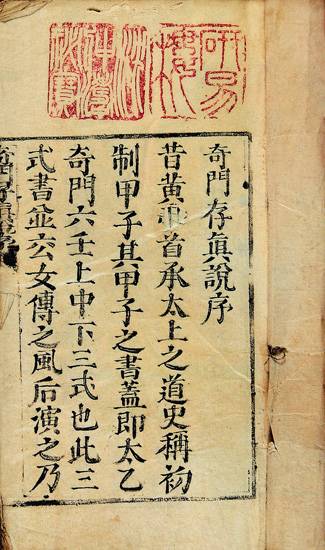 研易樓
奇門存眞說序
昔黃帝首承太上之道史稱初
制甲子其甲子之書蓋即太乙
奇門六壬上中下三式也此三
式書並六公女傳之風后演之乃